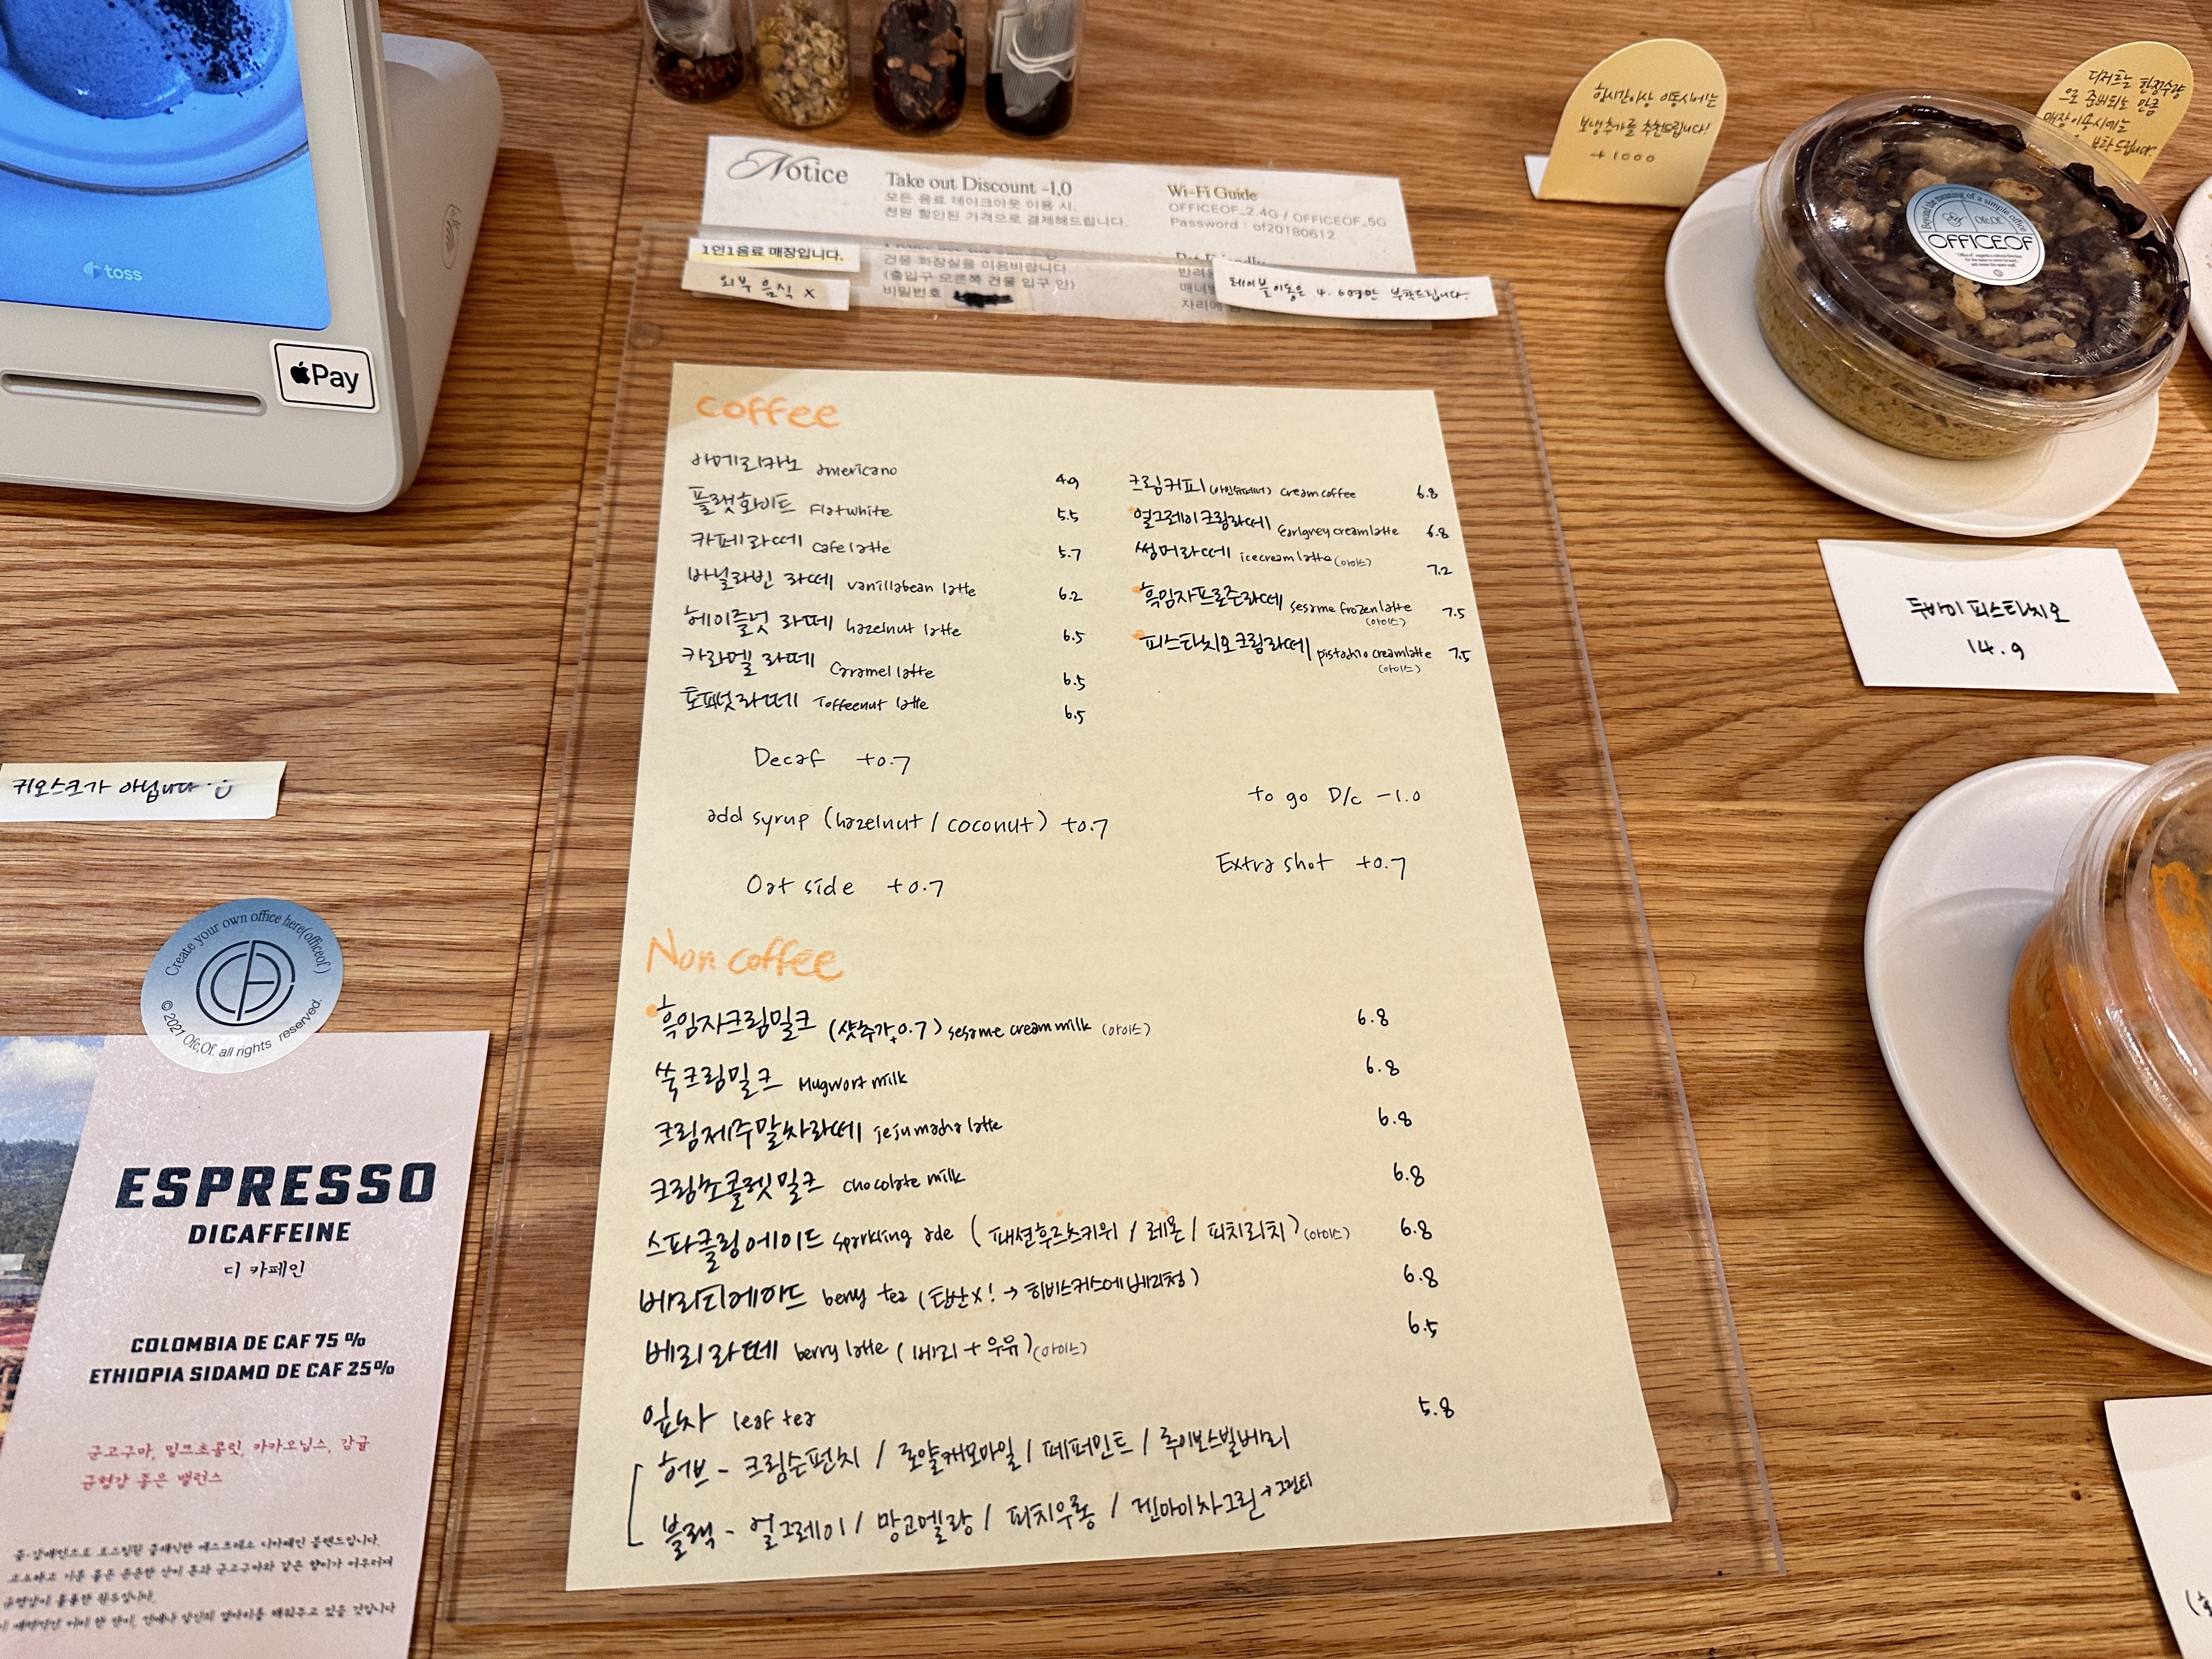 toss
Apple Pay
Notice
Take out Discount -1.0
모든 음료 테이크아웃 이용 시,
천원 할인된 가격으로 결제해드립니다.
Wi-Fi Guide
OFFICEOF_2.4G / OFFICEOF_5G
Password : of20180612
1인1음료 매장입니다.
건물 화장실을 이용바랍니다.
(출입구 오른쪽 건물 입구 안)
비밀번호
외부 음식 X
테이블이동은 4, 6명만 부탁드립니다.
한시간이상 이동시에는
보냉추가를 추천드립니다!
+1000
디저트는 한정수량
으로 준비되는 만큼
매장이용시에는
부탁드립니다.
OFFICEOF
두바이 피스타치오
14.9
coffee
아메리카노 americano 4.9
플랫화이트 Flatwhite 5.5
카페라떼 cafe latte 5.7
바닐라빈 라떼 vanillabean latte 6.2
헤이즐넛 라떼 hazelnut latte 6.5
카라멜 라떼 Caramel latte 6.5
토피넛라떼 Toffeenut latte 6.5
크림커피(아인슈페너) cream coffee 6.8
얼그레이크림라떼 Earlgrey creamlatte 6.8
썸머라떼 icecream latte (아이스) 7.2
흑임자프로즌라떼 sesame frozen latte (아이스) 7.5
피스타치오크림라떼 pistachio creamlatte (아이스) 7.5
Decaf +0.7
to go D/c -1.0
add syrup (hazelnut / coconut) +0.7
Extra shot +0.7
Oat side +0.7
Non coffee
흑임자크림밀크 (샷추가+0.7) sesame cream milk (아이스) 6.8
쑥크림밀크 Mugwort milk 6.8
크림제주말차라떼 jeju macha latte 6.8
크림초콜렛밀크 chocolate milk 6.8
스파클링에이드 sparkling ade (패션후르츠키위 / 레몬 / 피치리치) (아이스) 6.8
베리티에이드 berry tea (탄산X! → 히비스커스에베리청) 6.8
베리라떼 berry latte (베리 + 우유) (아이스) 6.5
잎차 leaf tea 5.8
허브 - 크림슨펀치 / 로얄캐모마일 / 페퍼민트 / 루이보스빌베리
블랙 - 얼그레이 / 망고멜랑 / 피치우롱 / 겐마이차그린 → 그린티
키오스크가 아닙니다
Create your own office here(officeof)
© 2021 Ofc,Of. all rights reserved.
ESPRESSO
DICAFFEINE
디 카페인
COLOMBIA DE CAF 75 %
ETHIOPIA SIDAMO DE CAF 25%
군고구마, 밀크초콜릿, 카카오닙스, 감귤
균형감 좋은 밸런스